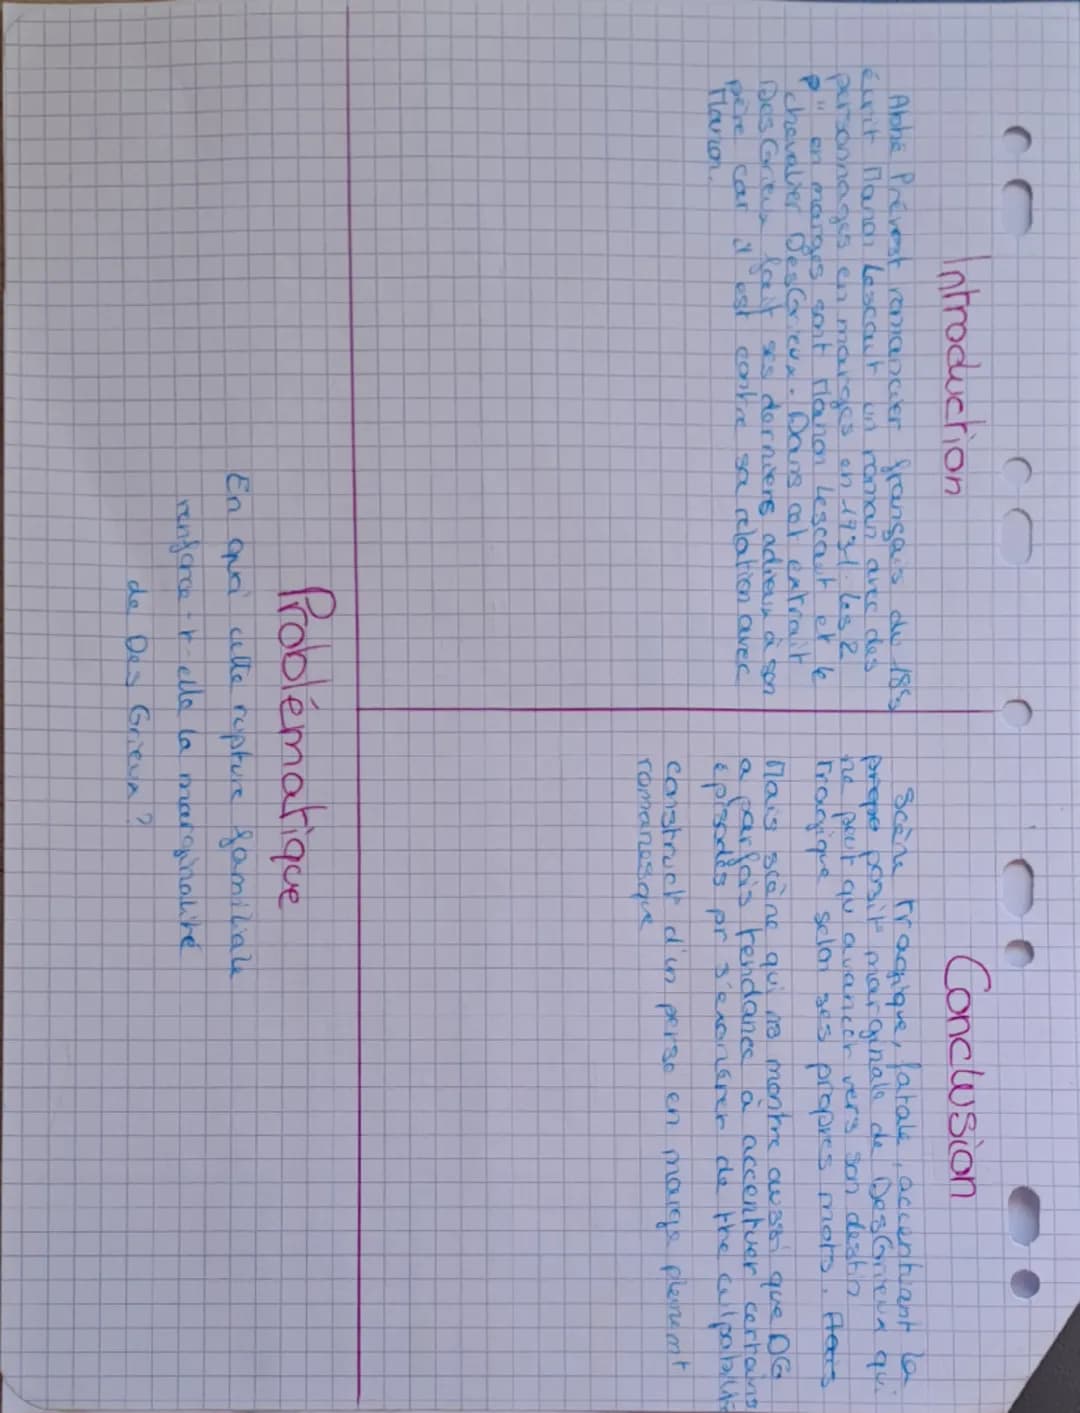 Introduction
Abbé Prévost romancier français du 18es
écrit Manon Lescaut un roman avec des
personnages en marges en 1731. Les 2
p" en marges sont Manon Lescaut et le
chevalier DesGrieux. Dans cet extrait
DesGrieux fait ses derniers adieux à son
père car il est contre sa relation avec
Manon.
Conclusion
Scène tragique, fatale, accentuant la
propo posit° marginale de DesGrieux qui
ne peut qu'avancer vers son destin
tragique selon ses propres mots. Mais
Mais scène qui ns montre aussi que DG
a parfois tendance à accentuer certains
épisodes pr s'exonérer de tte culpabilité
construct° d'un perso en marge plenemt
romanesque
Problématique
En quoi cette rupture familiale
renforce-t-elle la marginalité
de Des Grieux ?